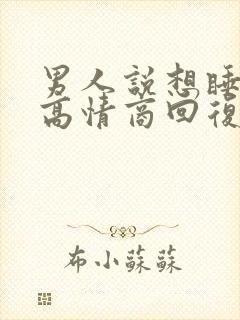 男人說想睡
高情商回復
布小蘇蘇